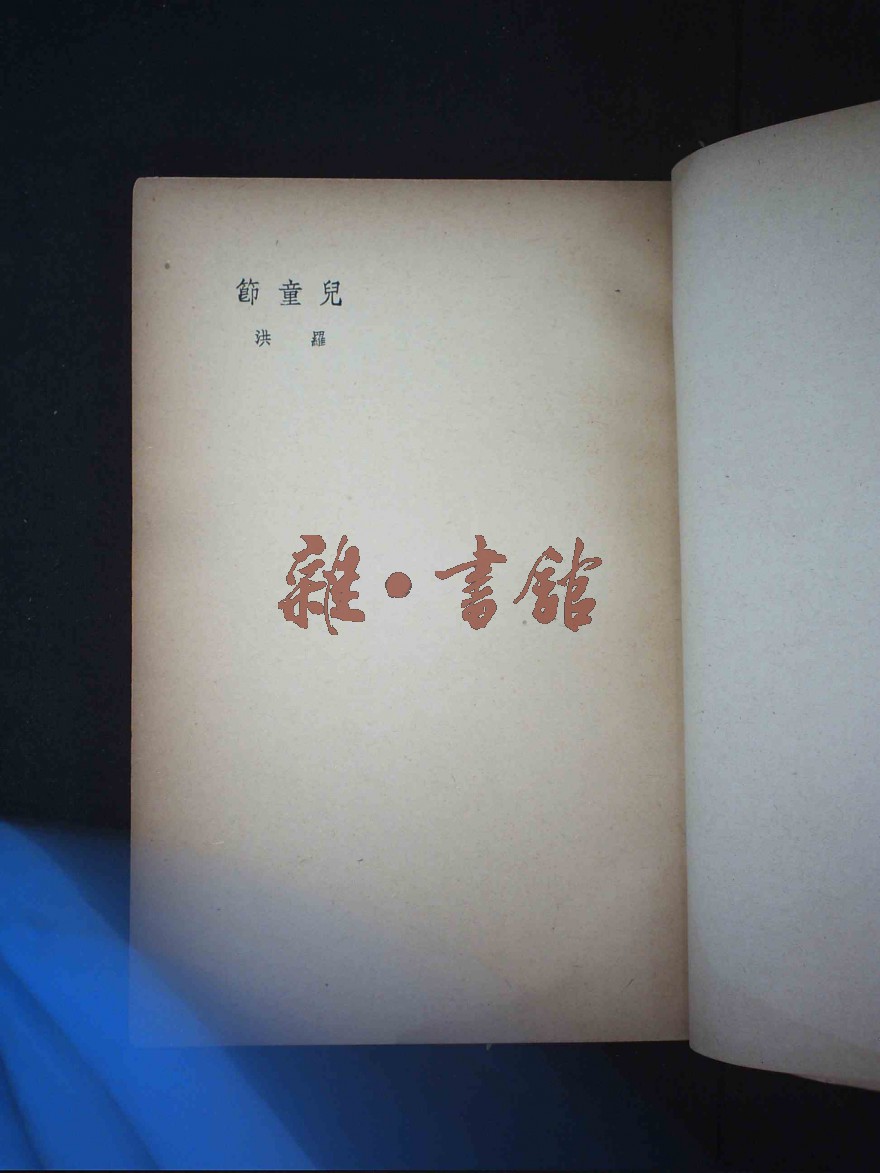 兒童節
羅洪
雜·書館